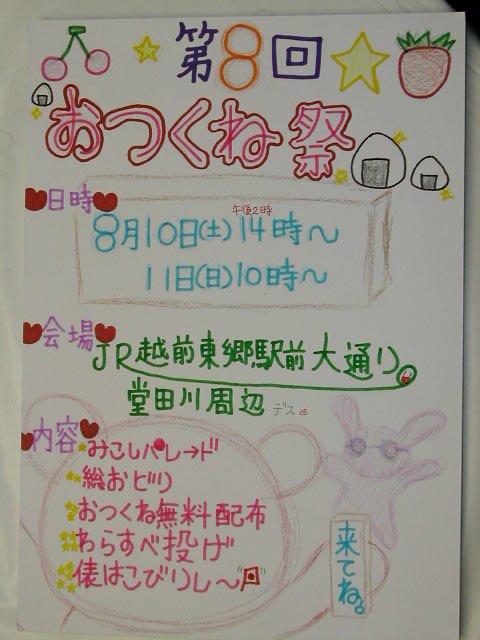 第8回
おつくね祭
日時
午後2時
8月10日(土)14時〜
11日(日)10時〜
会場
JR越前東郷駅前大通り
堂田川周辺 デス
内容
みこしパレード
総おどり
おつくね無料配布
わらすべ投げ
俵はこびリレ〜
来てね。